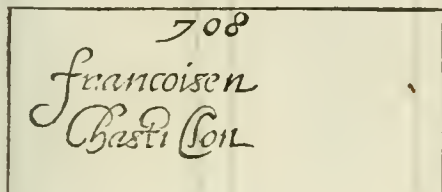 708
francoisen
Chastillon